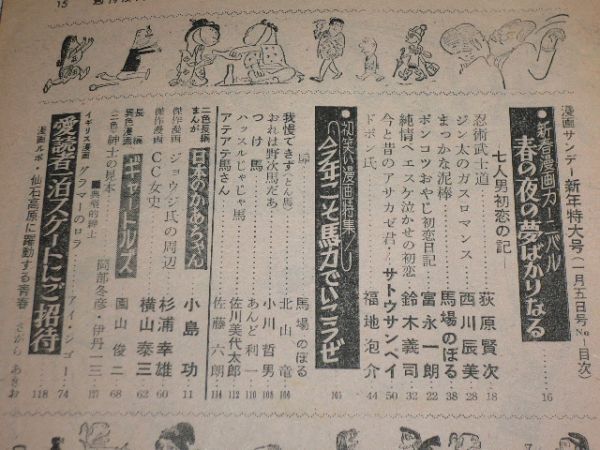 15
漫画サンデー新年特大号(一月五日号No1目次)
●新春漫画カーニバル
春の夜の夢ばかりなる…16
七人男初恋の記
忍術武士道 荻原賢次 18
ジン太のガスロマンス 西川辰美 28
まっかな泥棒 馬場のぼる 38
ポンコツおやじ初恋日記 富永一朗 22
純情ヘエスケ泣かせの初恋 鈴木義司 32
今と昔のアサカゼ君 サトウサンペイ 50
ドボン氏 福地泡介 44
●初笑い漫画特集
今年こそ馬力でいこうぜ 105
扉 馬場のぼる
我慢できず(とん馬) 北山竜 106
おれは野次馬だあ 小川哲男 108
つけ馬 あんど利一 110
ハッスルじゃじゃ馬 佐川美代太郎 112
アテアテ馬さん 佐藤六朗 114
二色長編まんが 日本のかあちゃん 小島功 11
傑作漫画 ジョウジ氏の周辺 杉浦幸雄 60
傑作漫画 CC女史 横山泰三 62
長編異色漫画 ギャートルズ 園山俊二 68
三色 紳士の見本 ■典型的紳士 岡部冬彦・伊丹一三 127
イギリス漫画 グラマーのローラ アイ・ジゴー 74
愛読者一泊スケートにご招待
漫画ルポ 仙石高原に躍動する青春 さがらあきお 118